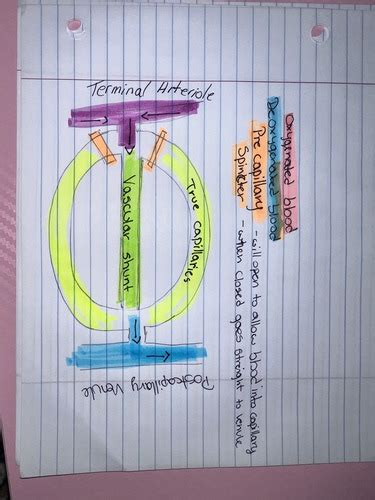 Terminal Arteriole
True capillaries
Vascular shunt
Postcapillary Venule
Oxygenated blood
Deoxygenated blood
Pre capillary - will open to allow blood into capillary
Spincter - when closed goes straight to venule